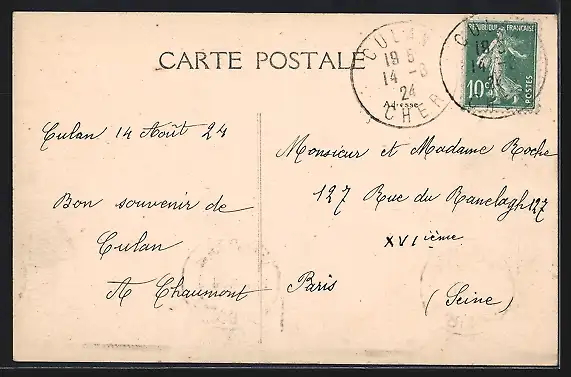 CARTE POSTALE
CULAN
19 5
14 -8
24
CHER
REPUBLIQUE FRANÇAISE
10c
POSTES
Culan 14 Août 24
Bon souvenir de
Culan
A Chaumont
Monsieur et Madame Roche
127 Rue du Ranelagh 127
XVIième
Paris
(Seine)